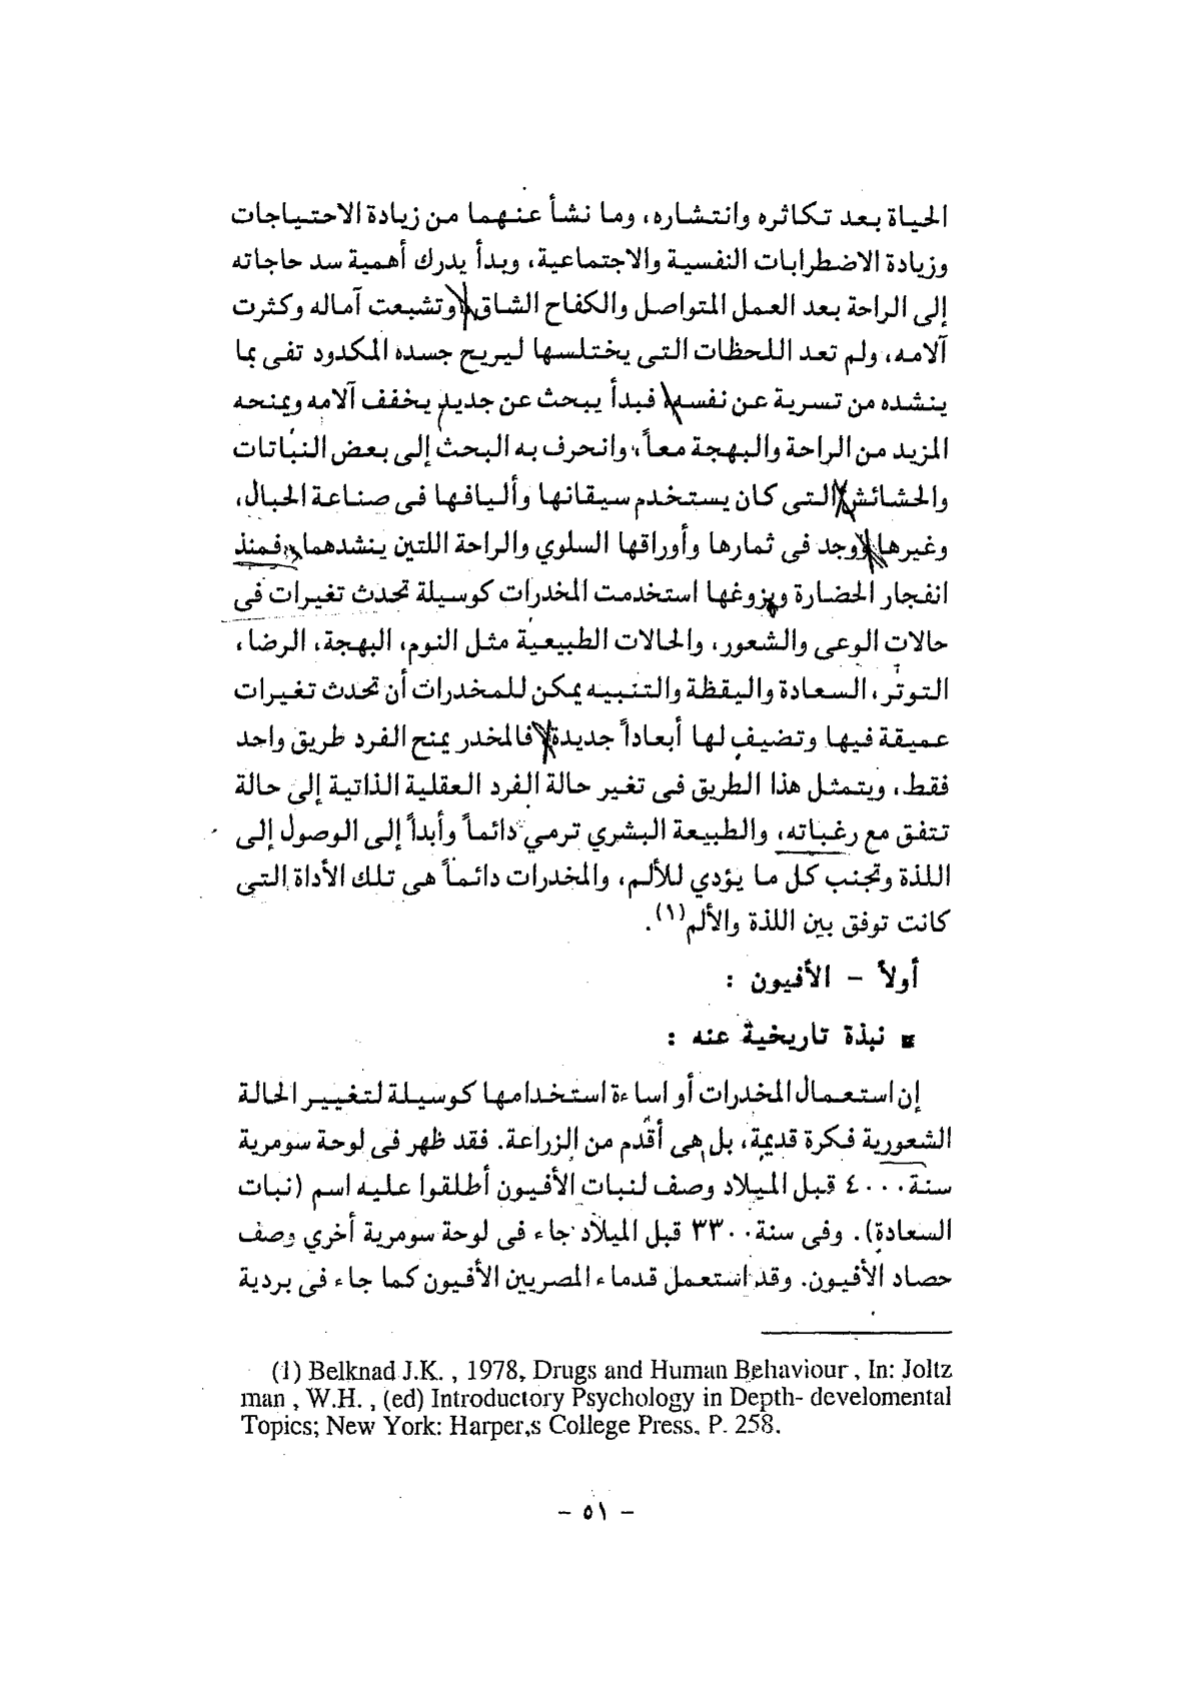 الحياة بعد تكاثره وانتشاره، وما نشأ عنهما من زيادة الاحتياجات
وزيادة الاضطرابات النفسية والاجتماعية، وبدأ يدرك أهمية سد حاجاته
إلى الراحة بعد العمل المتواصل والكفاح الشاق، وتشبعت آماله وكثرت
آلامه، ولم تعد اللحظات التى يختلسها ليريح جسده المكدود تفى بما
ينشده من تسرية عن نفسه، فبدأ يبحث عن جديد يخفف آلامه ويمنحه
المزيد من الراحة والبهجة معاً، وانحرف به البحث إلى بعض النباتات
والحشائش التى كان يستخدم سيقانها وأليافها فى صناعة الحبال،
وغيرها ووجد فى ثمارها وأوراقها السلوي والراحة اللتين ينشدهما، فمنذ
انفجار الحضارة وبزوغها استخدمت المخدرات كوسيلة تحدث تغيرات فى
حالات الوعى والشعور، والحالات الطبيعية مثل النوم، البهجة، الرضا،
التوتر، السعادة واليقظة والتنبيه يمكن للمخدرات أن تحدث تغيرات
عميقة فيها وتضيف لها أبعاداً جديدة فالمخدر يمنح الفرد طريق واحد
فقط، ويتمثل هذا الطريق فى تغير حالة الفرد العقلية الذاتية إلى حالة
تتفق مع رغباته، والطبيعة البشري ترمي دائماً وأبداً إلى الوصول إلى
اللذة وتجنب كل ما يؤدي للألم، والمخدرات دائماً هى تلك الأداة التى
كانت توفق بين اللذة والألم(١).
أولاً – الأفيون :
■ نبذة تاريخية عنه :
إن استعمال المخدرات أو اساءة استخدامها كوسيلة لتغيير الحالة
الشعورية فكرة قديمة، بل هى أقدم من الزراعة. فقد ظهر فى لوحة سومرية
سنة ٤٠٠٠ قبل الميلاد وصف لنبات الأفيون أطلقوا عليه اسم (نبات
السعادة). وفى سنة ٣٣٠٠ قبل الميلاد جاء فى لوحة سومرية أخري وصف
حصاد الأفيون. وقد استعمل قدماء المصريين الأفيون كما جاء فى بردية
(1) Belknad J.K. , 1978, Drugs and Human Behaviour , In: Joltz
man , W.H. , (ed) Introductory Psychology in Depth- develomental
Topics; New York: Harper,s College Press, P. 258.
– ٥١ –